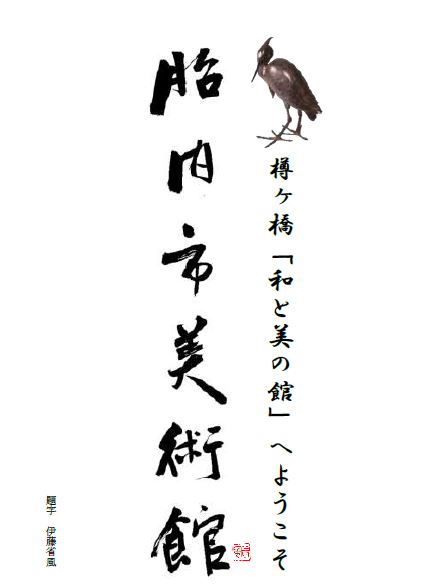 樽ヶ橋「和と美の館」へようこそ
胎内市美術館
題字 伊藤省風